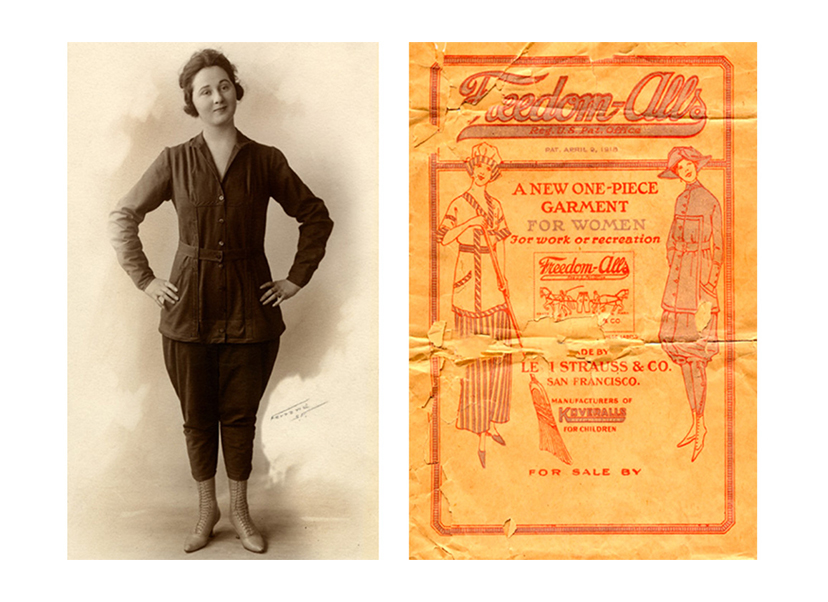 Freedom-Alls
Reg. U.S. Pat. Office
PAT. APRIL 9, 1918
A NEW ONE-PIECE
GARMENT
FOR WOMEN
For work or recreation
Freedom-Alls
& CO
ADE BY
LE I STRAUSS & CO.
SAN FRANCISCO.
MANUFACTURERS OF
KOVERALLS
FOR CHILDREN
FOR SALE BY